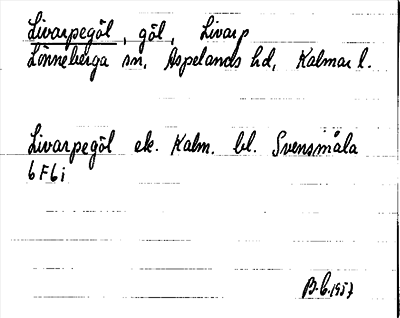 Livarpegöl, göl, Livarp
Lönneberga sn, Aspelands hd, Kalmar l.
Livarpegöl ek. Kalm. bl. Svensmåla
6F6i
B.E. 1957